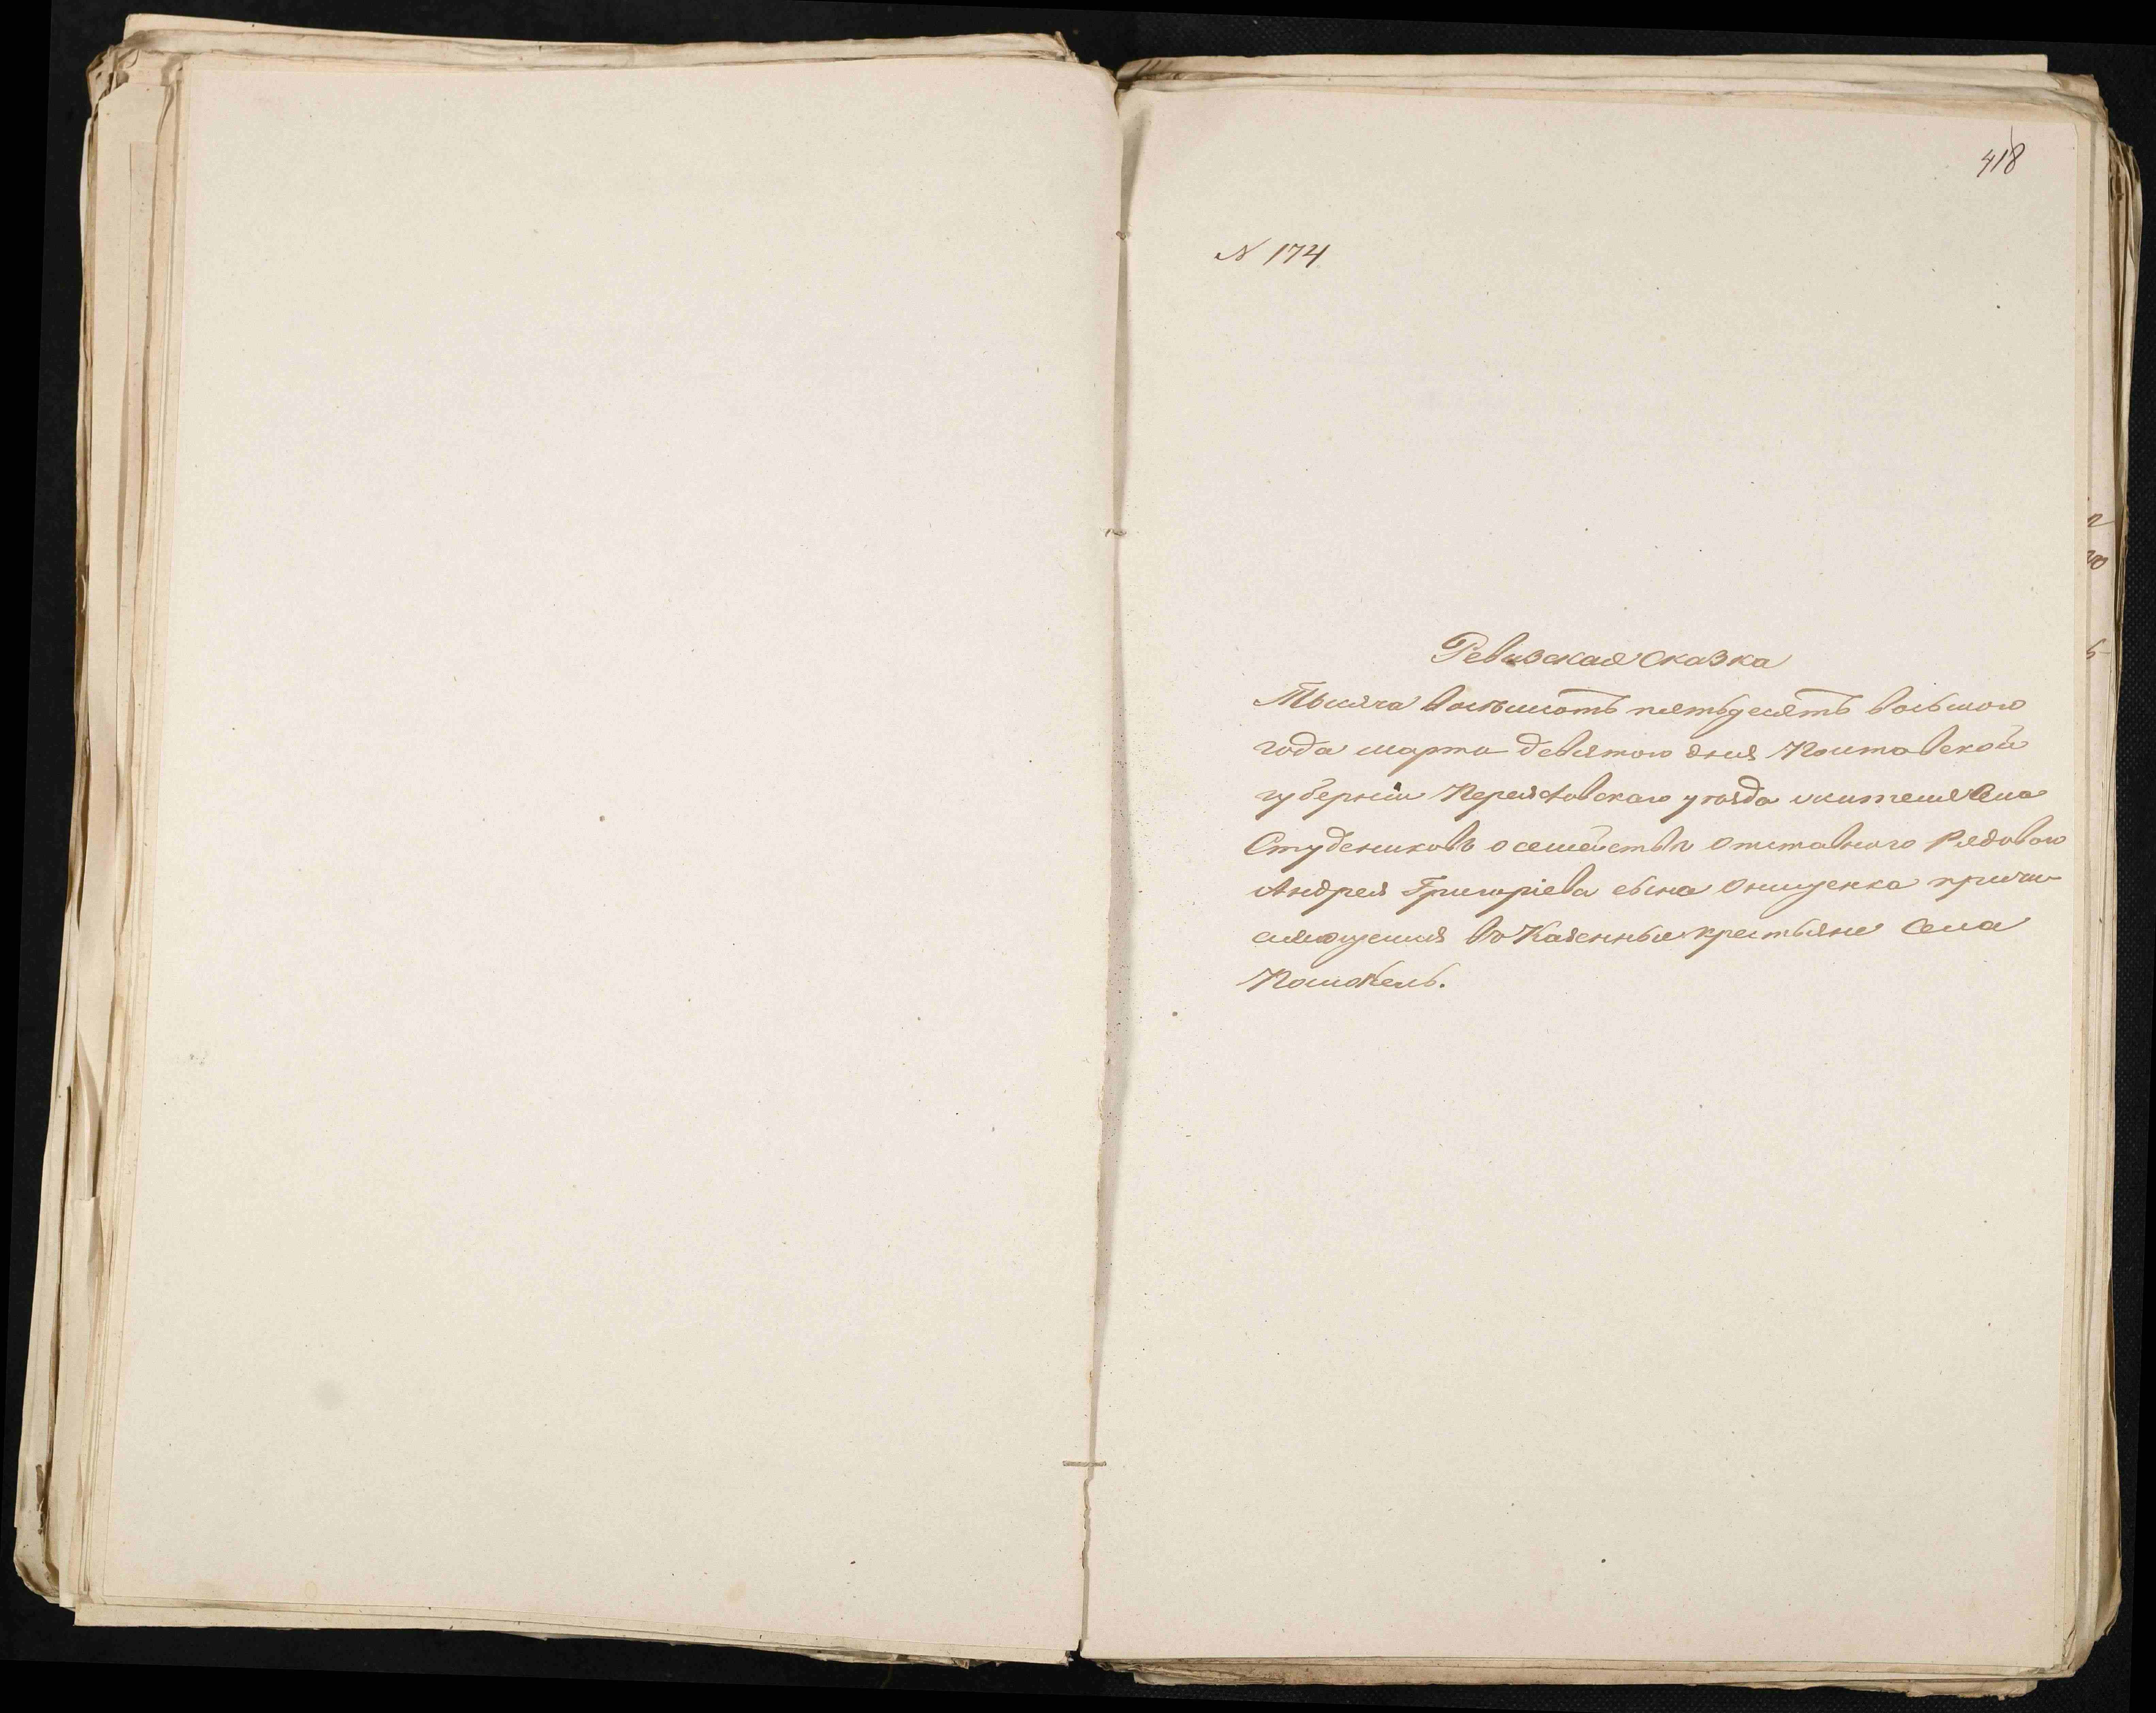 418
N 174
Ревизская сказка
Тысяча восьмисотъ пятьдесятъ восьмого
года марта девятого дня Полтавской
губерніи Переяславскаго уѣзда жителя села
Студениковъ о семействѣ отставного Рядового
Андрея Григоріева сына Онищенка причи
сляющагося въ Казенные крестьяне села